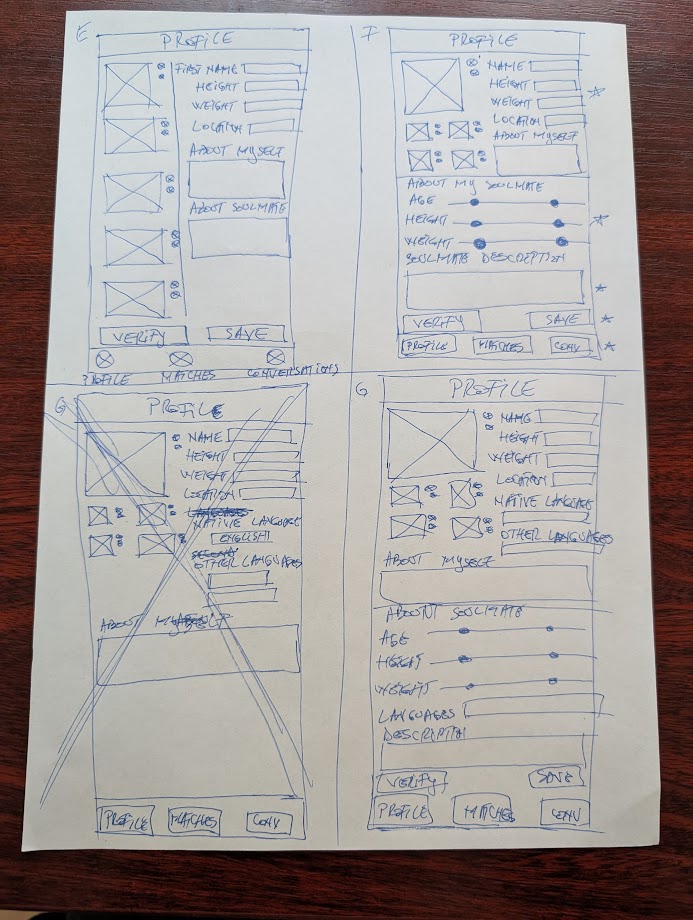 E
PROFILE
FIRST NAME
HEIGHT
WEIGHT
LOCATION
ABOUT MYSELF
ABOUT SOULMATE
VERIFY SAVE
PROFILE MATCHES CONVERSATIONS
F
PROFILE
NAME
HEIGHT
WEIGHT
LOCATION
ABOUT MYSELF
ABOUT MY SOULMATE
AGE
HEIGHT
WEIGHT
SOULMATE DESCRIPTION
VERIFY SAVE
PROFILE MATCHES CONV
G
PROFILE
NAME
HEIGHT
WEIGHT
LOCATION
LANGUAGES
NATIVE LANGUAGE
ENGLISH
SECOND
OTHER LANGUAGES
ABOUT MYSELF
PROFILE MATCHES CONV
G
PROFILE
NAME
HEIGHT
WEIGHT
LOCATION
NATIVE LANGUAGE
OTHER LANGUAGES
ABOUT MYSELF
ABOUNT SOULMATE
AGE
HEIGHT
WEIGHT
LANGUAGES
DESCRIPTION
VERIFY SAVE
PROFILE MATCHES CONV